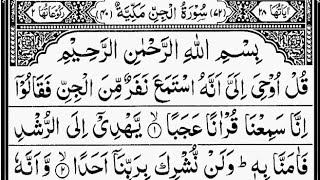 اٰیَاتُهَا ٢٨ (٧٢) سُوْرَةُ الْجِنِّ مَكِّیَّةٌ (٤٠) رُكُوْعَاتُهَا ٢
بِسْمِ اللّٰهِ الرَّحْمٰنِ الرَّحِیْمِ
قُلْ اُوْحِیَ اِلَیَّ اَنَّهُ اسْتَمَعَ نَفَرٌ مِّنَ الْجِنِّ فَقَالُوْۤا
اِنَّا سَمِعْنَا قُرْاٰنًا عَجَبًا ۙ﴿١﴾ یَّهْدِیْۤ اِلَى الرُّشْدِ
فَاٰمَنَّا بِهٖ ؕ وَلَنْ نُّشْرِكَ بِرَبِّنَاۤ اَحَدًا ۙ﴿٢﴾ وَّاَنَّهٗ